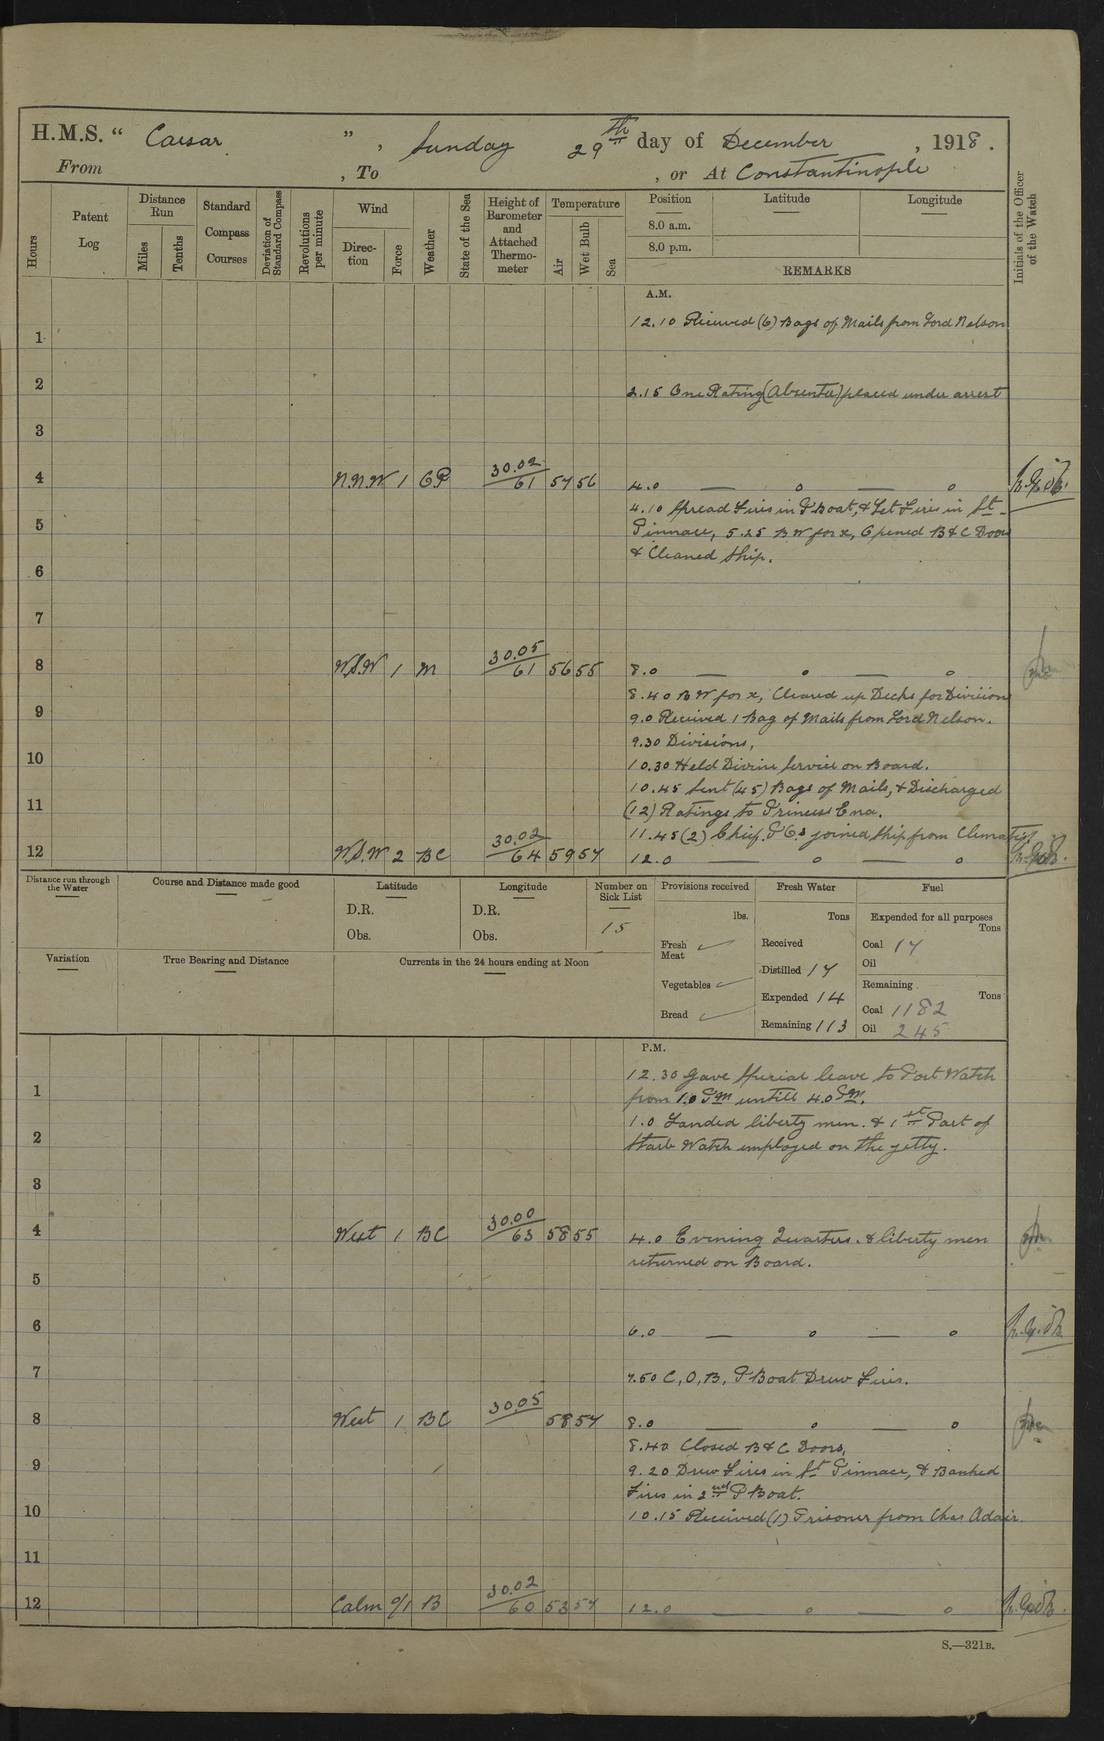 H.M.S. " Caesar ", Sunday 29th day of December, 1918.
From , To , or At Constantinople
Hours
Patent Log
Distance Run
Miles
Tenths
Standard Compass Courses
Deviation of Standard Compass
Revolutions per minute
Wind
Direction
Force
Weather
State of the Sea
Height of Barometer and Attached Thermometer
Temperature
Air
Wet Bulb
Sea
Position
8.0 a.m.
8.0 p.m.
Latitude
Longitude
REMARKS
Initials of the Officer of the Watch
A.M.
12.10 Received (6) Bags of Mails from Lord Nelson
1
2
2.15 One Rating (Absentee) placed under arrest
3
4 N.N.W 1 CP 30.02/61 57 56 4.0 — o — o
4.10 Spread Fires in P Boat, & Let Fires in St
5 Pinnace, 5.25 BW for x, Opened B & C Doors
& Cleaned Ship.
6
7
8 W.S.W 1 M 30.05/61 56 55 8.0 — o — o
8.40 BW for x, Cleared up Decks for Division
9 9.0 Received 1 Bag of Mails from Lord Nelson.
9.30 Divisions,
10 10.30 Held Divine Service on Board.
10.45 Sent (45) Bags of Mails, & Discharged
11 (12) Ratings to Princess Ena.
11.45 (2) Chief. P Os joined Ship from Clematis
12 W.S.W 2 BC 30.02/64 59 57 12.0 — o — o
Distance run through the Water
Course and Distance made good
Latitude
D.R.
Obs.
Longitude
D.R.
Obs.
Number on Sick List
15
Provisions received
lbs.
Fresh Meat
Vegetables
Bread
Fresh Water
Tons
Received
Distilled 17
Expended 14
Remaining 113
Fuel
Expended for all purposes
Tons
Coal 17
Oil
Remaining
Tons
Coal 1182
Oil 245
Variation
True Bearing and Distance
Currents in the 24 hours ending at Noon
P.M.
12.30 Gave Special leave to Port Watch
1 from 1.0 PM untill 4.0 PM.
1.0 Landed liberty men. & 1st Part of
2 Starb Watch employed on the jetty.
3
4 West 1 BC 30.00/63 58 55 4.0 Evening Quarters. & liberty men
returned on Board.
5
6 6.0 — o — o
7 7.50 C, O, B, P Boat Drew Fires.
8 West 1 BC 30.05 58 57 8.0 — o — o
8.40 Closed B & C Doors,
9 9.20 Drew Fires in St Pinnace, & Banked
Fires in 2nd P Boat.
10 10.15 Received (1) Prisoner from Chas Adair.
11
12 Calm 0/1 B 30.02/60 53 57 12.0 — o — o
S.—321B.